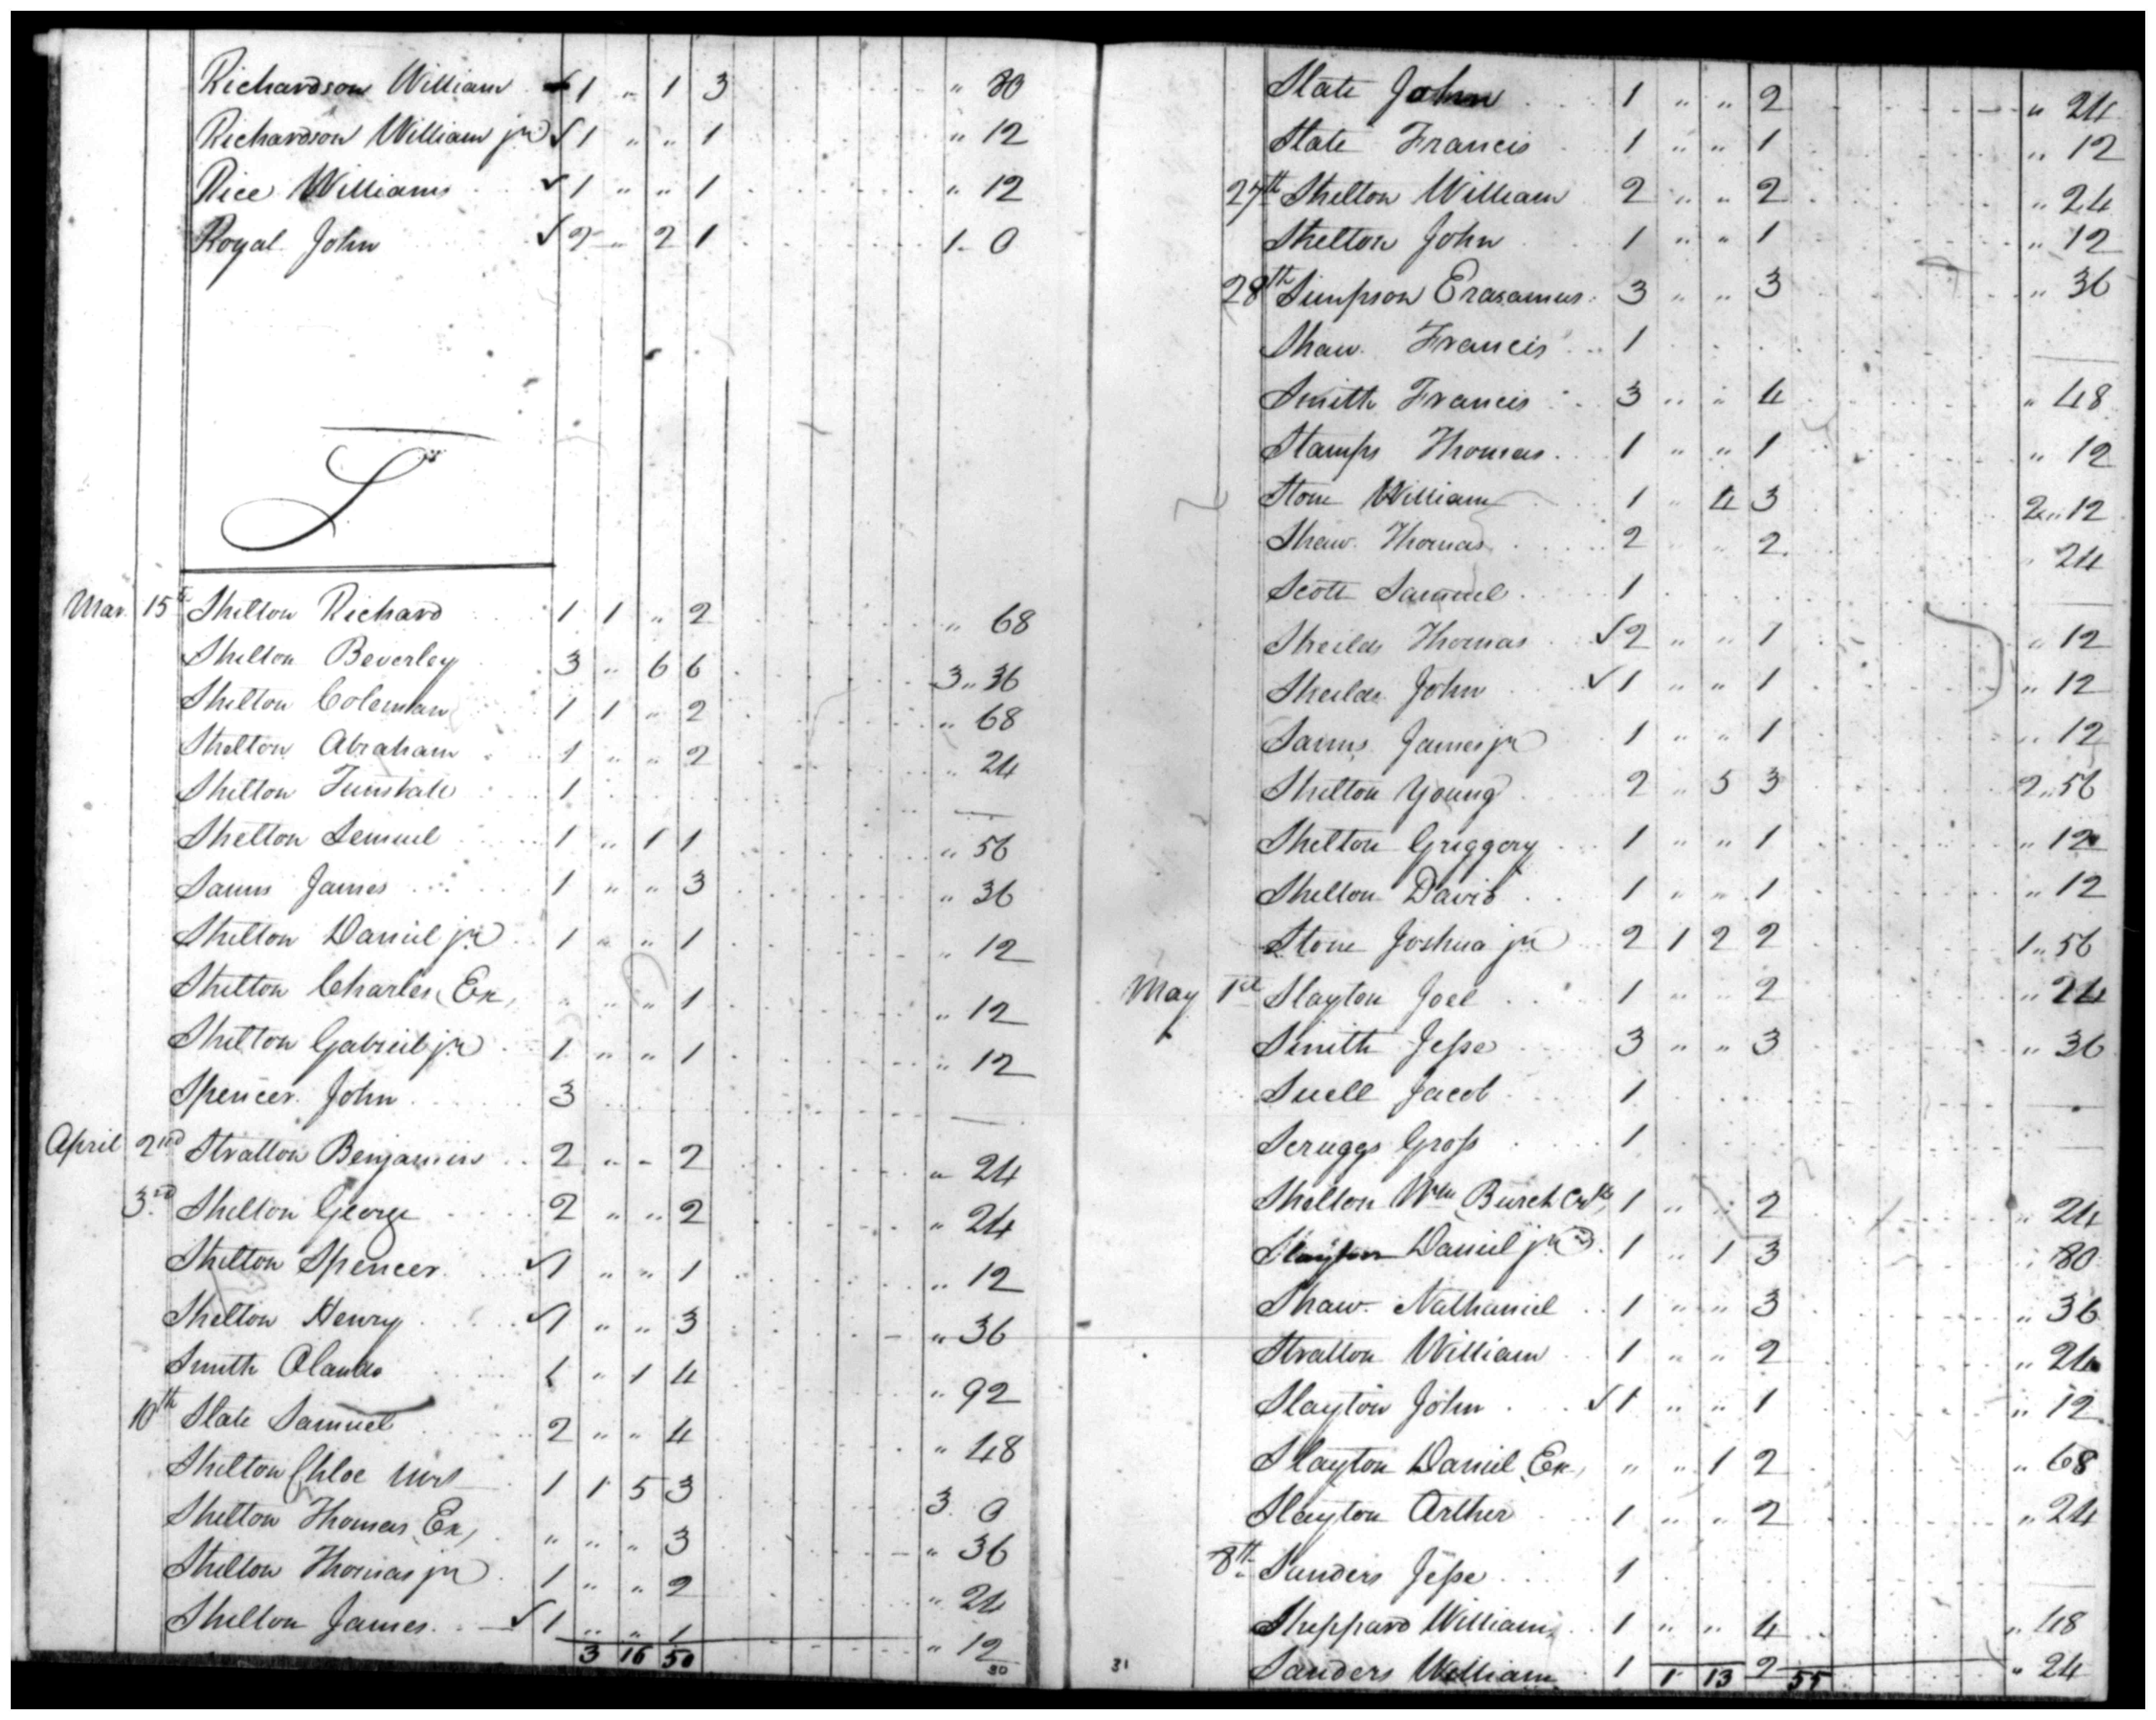 Richardson William 1 " 1 3 " 80
Richardson William jr ✓ 1 " " 1 " 12
Rice Williams ✓ 1 " " 1 " 12
Royal John ✓ 2 " 2 1 1 - 0
S
Mar. 15th Shelton Richard 1 1 " 2 " 68
Shelton Beverley 3 " 6 6 3 " 36
Shelton Coleman 1 1 " 2 " 68
Shelton Abraham 1 " " 2 " 24
Shelton Tunstale 1
Shelton Lemuel 1 " 1 1 " 56
Sams James 1 " " 3 " 36
Shelton Daniel jr 1 " " 1 " 12
Shelton Charles, Ex, " " " 1 " 12
Shelton Gabriel jr 1 " " 1 " 12
Spencer John 3
April 2nd Stratton Benjamin 2 " - 2 " 24
3rd Shelton George 2 " " 2 " 24
Shelton Spencer ✓ 1 " " 1 " 12
Shelton Henry ✓ 1 " " 3 " 36
Smith Olando 1 " 1 4 " 92
10th Slate Samuel 2 " " 4 " 48
Shelton Chloe Mrs 1 1 5 3 3 0
Shelton Thomas Ex, " " " 3 " 36
Shelton Thomas jr 1 " " 2 " 24
Shelton James ✓ 1 " " 1 " 12
3 16 50
30
Slate John 1 " " 2 " 24
Slate Francis 1 " " 1 " 12
27th Shelton William 2 " " 2 " 24
Shelton John 1 " " 1 " 12
28th Simpson Erasamus 3 " " 3 " 36
Shaw Francis 1
Smith Francis 3 " " 4 " 48
Stamps Thomas 1 " " 1 " 12
Stone William 1 " 4 3 2 " 12
Shaw Thomas 2 " " 2 24
Scott Samuel 1
Sheilds Thomas ✓ 2 " " 1 " 12
Sheilds John ✓ 1 " " 1 " 12
Sams James jr 1 " " 1 " 12
Shelton Young 2 " 5 3 2 " 56
Shelton Griggory 1 " " 1 " 12
Shelton David 1 " " 1 " 12
Stone Joshua jr 2 1 2 2 1 " 56
May 1st Slayton Joel 1 " " 2 " 24
Smith Jesse 3 " " 3 " 36
Snell Jacob 1
Scruggs Gross 1
Shelton Wm Burch Crk, 1 " " 2 " 24
Slayton Daniel jr 1 " 1 3 " 80
Shaw Nathaniel 1 " " 3 " 36
Stratton William 1 " " 2 " 24
Slayton John ✓ 1 " " 1 " 12
Slayton Daniel Ex, " " 1 2 " 68
Slayton Arther 1 " " 2 " 24
8th Sanders Jesse 1
Sheppard William 1 " " 4 " 48
Sanders William 1 2 " 24
31 1 13 55